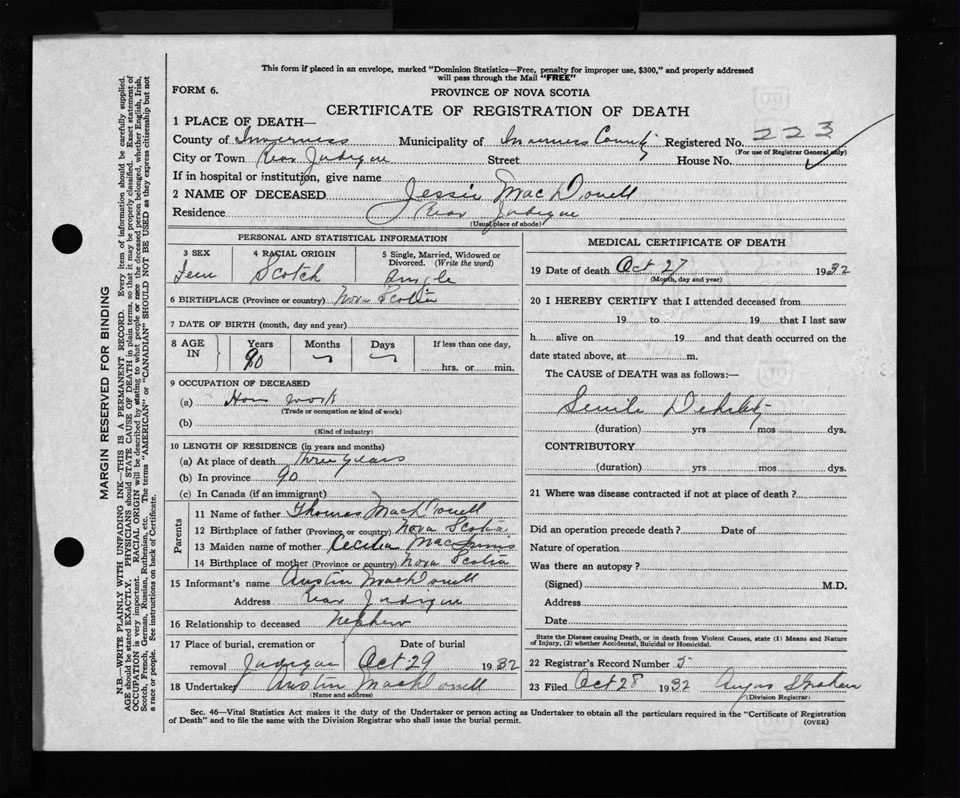 This form if placed in an envelope, marked "Dominion Statistics—Free, penalty for improper use, $300," and properly addressed
will pass through the Mail "FREE"
FORM 6.
PROVINCE OF NOVA SCOTIA
CERTIFICATE OF REGISTRATION OF DEATH
1 PLACE OF DEATH—
County of Inverness Municipality of Inverness County Registered No. 223
(For use of Registrar General only)
City or Town Rear Judique Street House No.
If in hospital or institution, give name
2 NAME OF DECEASED Jessie MacDonell
Residence Rear Judique
(Usual place of abode)
PERSONAL AND STATISTICAL INFORMATION
3 SEX 4 RACIAL ORIGIN 5 Single, Married, Widowed or
Divorced. (Write the word)
Fem Scotch Single
6 BIRTHPLACE (Province or country) Nova Scotia
7 DATE OF BIRTH (month, day and year)
8 AGE IN Years Months Days If less than one day,
90 hrs. or min.
9 OCCUPATION OF DECEASED
(a) work
(Trade or occupation or kind of work)
(b)
(Kind of industry)
10 LENGTH OF RESIDENCE (in years and months)
(a) At place of death three years
(b) In province 90
(c) In Canada (if an immigrant)
Parents
11 Name of father Thomas MacDonell
12 Birthplace of father (Province or country) Nova Scotia
13 Maiden name of mother Cecilia MacInnis
14 Birthplace of mother (Province or country) Nova Scotia
15 Informant's name Austin MacDonell
Address Rear Judique
16 Relationship to deceased Nephew
17 Place of burial, cremation or Date of burial
removal Judique Oct 29 1932
18 Undertaker Austin MacDonell
(Name and address)
MEDICAL CERTIFICATE OF DEATH
19 Date of death Oct 27 1932
(Month, day and year)
20 I HEREBY CERTIFY that I attended deceased from
19 to 19 that I last saw
h alive on 19 and that death occurred on the
date stated above, at m.
The CAUSE of DEATH was as follows:—
Senile Debility
(duration) yrs mos dys.
CONTRIBUTORY
(duration) yrs mos dys.
21 Where was disease contracted if not at place of death?
Did an operation precede death? Date of
Nature of operation
Was there an autopsy?
(Signed) M.D.
Address
Date
State the Disease causing Death, or in death from Violent Causes, state (1) Means and Nature
of Injury, (2) whether Accidental, Suicidal or Homicidal.
22 Registrar's Record Number 5
23 Filed Oct 28 1932 Angus Graham
(Division Registrar)
Sec. 46—Vital Statistics Act makes it the duty of the Undertaker or person acting as Undertaker to obtain all the particulars required in the "Certificate of Registration
of Death" and to file the same with the Division Registrar who shall issue the burial permit.
(OVER)
MARGIN RESERVED FOR BINDING
N.B.—WRITE PLAINLY WITH UNFADING INK—THIS IS A PERMANENT RECORD. Every item of information should be carefully supplied.
AGE should be stated EXACTLY. PHYSICIANS should STATE CAUSE OF DEATH in plain terms, so that it may be properly classified. Exact statement of
OCCUPATION is very important. RACIAL ORIGIN will be described by stating to what people or race the deceased person belonged, whether English, Irish,
Scotch, French, German, Russian, Ruthenian, etc. The terms "AMERICAN" or "CANADIAN" SHOULD NOT BE USED as they express citizenship but not
a race or people. See instructions on back of Certificate.